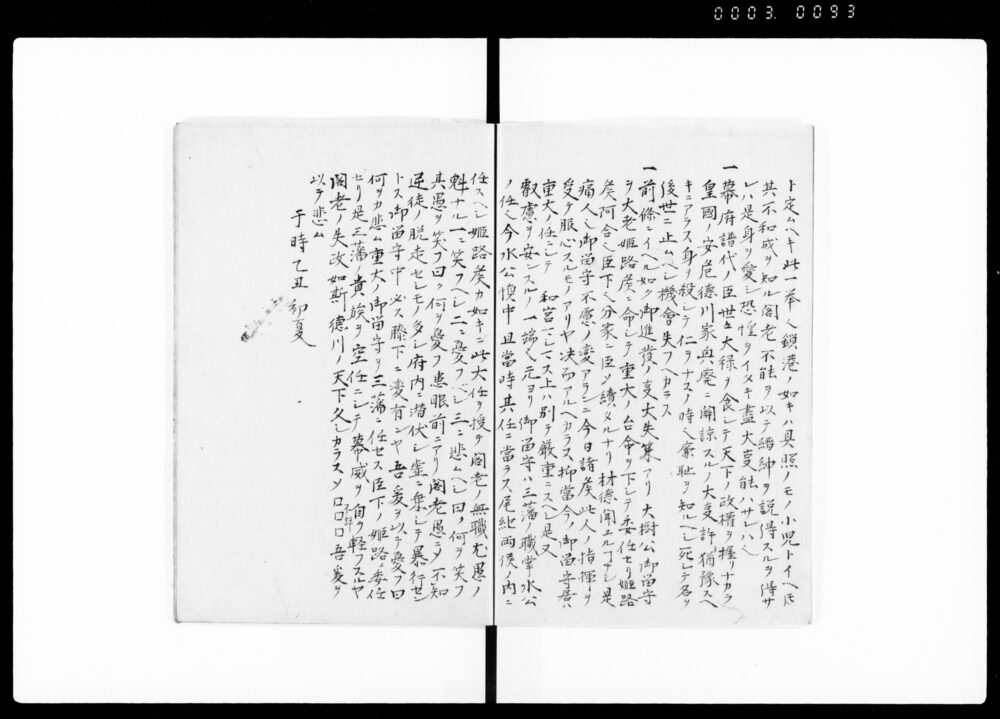 0003.0093
ト定ムヘキ此一挙ハ鎖港ノ如キハ具照ノモノ小児トイヘ𪜈
其不和成ヲ知ル閣老不能ヲ以テ縉紳ヲ説得スルヲ得サ
レハ是身ヲ愛シ恐惶ヲイタキ盡大事能ハサレハ也
一幕府譜代ノ臣世々大禄ヲ食シテ天下ノ政權ヲ握リナカラ
皇國ノ安危德川家興廃ニ關諒スルノ大事許猶豫スヘ
キニアラス身ヲ殺シテ仁ヲナスノ時ニ廉耻ヲ知ルヘシ死シテ名ヲ
後世ニ止ムヘシ機會失フヘカラス
一前條ニイヘル如ク御進發ノ事大失策アリ大樹公御留守
ヲ大老姫路侯ニ命シテ重大ノ台命ヲ下シテ委任セリ姫路
侯阿合シ臣下ニ分家ニ臣ノ績タルナリ材德聞エルナシ是
痛人也御留守不慮ノ変アランニ今日諸侯此人ノ指揮ヲ
受テ服心スルモノアリヤ决而アルヘカラス抑當今ノ御留守居ハ
重大ノ任ニシテ和宮ニマシマス上ハ別テ厳重ニスヘシ是又
叡慮ヲ安シスルノ一端也元ヨリ御留守ハ三藩ノ職掌水公
ノ任也今水公慎中且當時其任ニ當ラス尾紀両侯ノ内ニ
任スヘシ姫路侯カ如キニ此大任ヲ授ク閣老ノ無職尤愚ノ
魁ナル一ニ笑フヘシ二ニ憂フヘシ三ニ悲ムヘシ曰ク何ヲ笑フ
其愚ヲ笑フ曰ク何ヲ憂フ患眼前ニアリ閣老愚ニメ不知
逆徒ノ脱走セシモノ多シ府内ニ潜伏シ虚ニ乗シテ暴行セン
トス御留守中必ス膝下ニ変有ンヤ吾爰ヲ以テ憂フ曰
何ヲカ悲ム重大ノ御留守ヲ三藩ニ任セス臣下ノ姫路ニ委任
セリ是三藩ノ貴族ヲ空任ニシテ幕威ヲ自ラ軽フスルヤ
閣老ノ失政如斯德川ノ天下久シカラスメ口口口口不詳吾爰ヲ
以テ悲ム
于時乙丑初夏